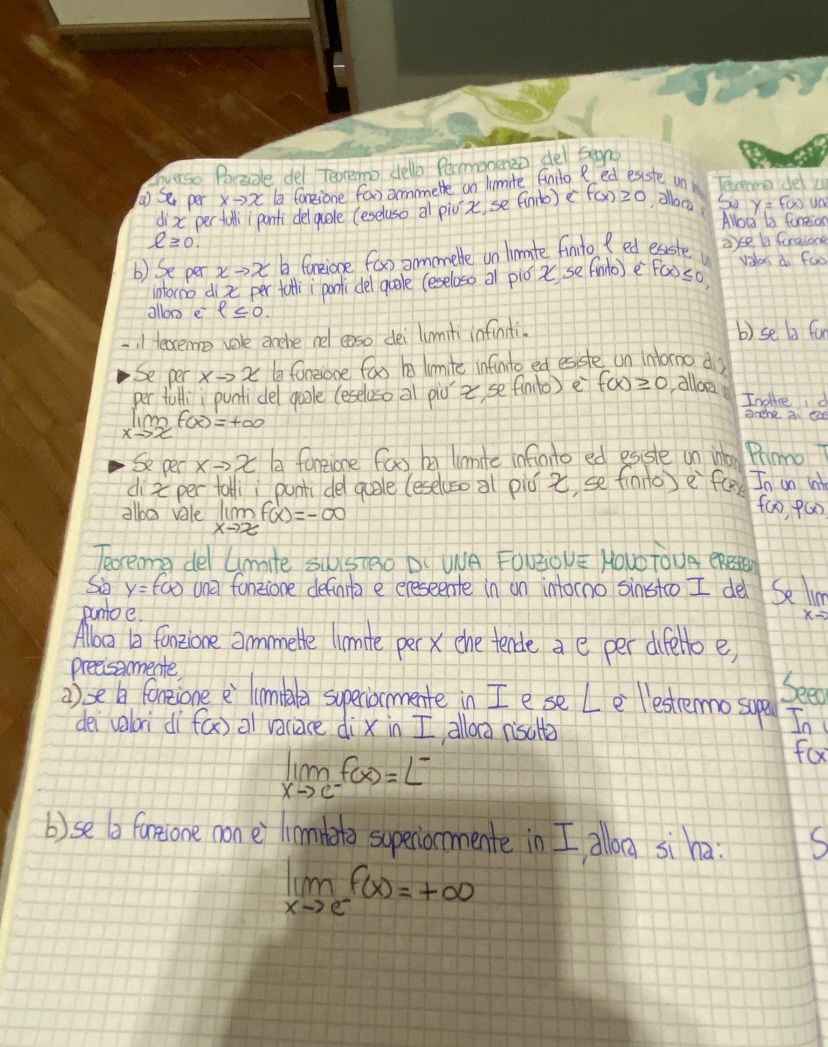 inverso Parziale del Teorema della Permanenza del Segno
a) Se per x→x la funzione f(x) ammette un limite finito l ed esiste un
di x per tutti i punti del quale (escluso al più x, se finito) è f(x)≥0, allora
l≥0.
b) Se per x→x la funzione f(x) ammette un limite finito l ed esiste
intorno di x per tutti i punti del quale (escluso al più x, se finito) è f(x)≤0,
allora è l≤0.
- il teorema vale anche nel caso dei limiti infiniti.
▶ Se per x→x la funzione f(x) ha limite infinito ed esiste un intorno di x
per tutti i punti del quale (escluso al più x, se finito) è f(x)≥0, allora
lim f(x)=+∞
x→x
▶ Se per x→x la funzione f(x) ha limite infinito ed esiste un intor
di x per tutti i punti del quale (escluso al più x, se finito) è f(x)
allora vale lim f(x)=-∞
x→x
Teorema del Limite SINISTRO DI UNA FUNZIONE MONOTONA CRESCEN
Sia y=f(x) una funzione definita e crescente in un intorno sinistro I del
punto c.
Allora la funzione ammette limite per x che tende a c per difetto e,
precisamente,
a) se la funzione è limitata superiormente in I e se L è l'estremo super
dei valori di f(x) al variare di x in I, allora risulta
lim f(x)=L⁻
x→c⁻
b) se la funzione non è limitata superiormente in I, allora si ha:
lim f(x)=+∞
x→c⁻
Teorema del
Sia y=f(x) un
Allora la funzion
a) se la funzione
valori di f(x)
b) se la fun
Inoltre, d
anche ai cas
Primo T
In un into
f(x), g(x),
Se lim
x→
Secon
In
f(x
S